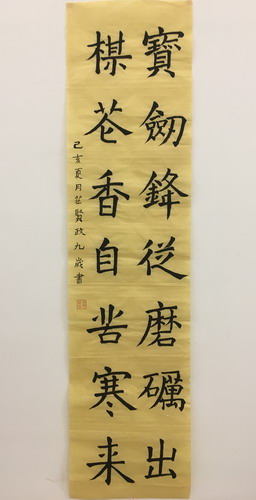 寶劒鋒従磨礪出
楳花香自苦寒来
己亥夏月 賢政九歲書